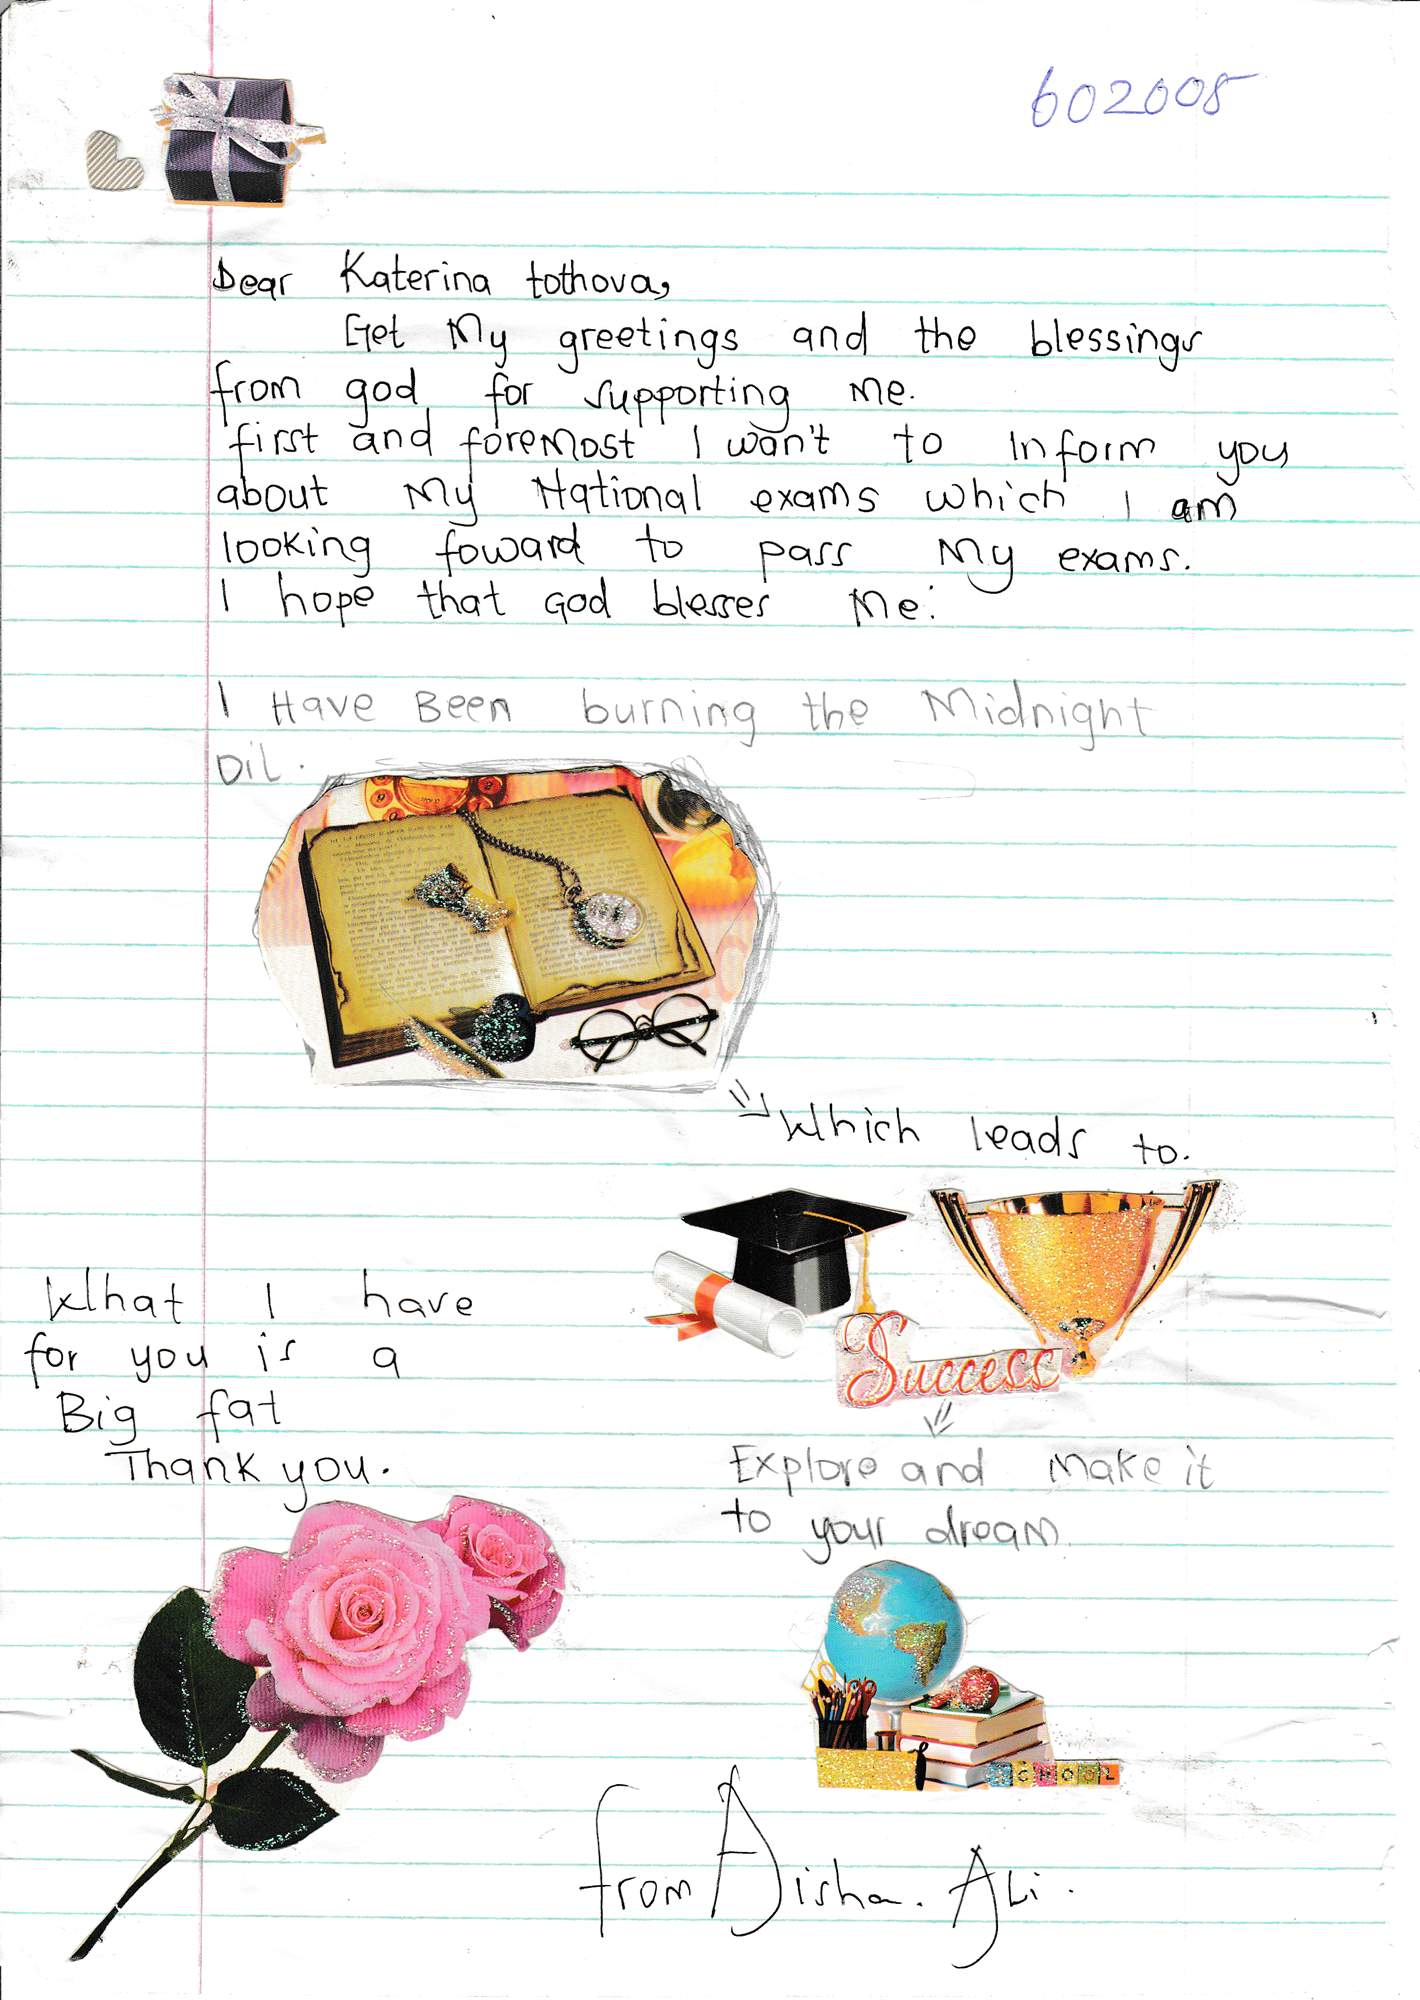 602008
Dear Katerina tothova,
Get My greetings and the blessings
from god for supporting Me.
first and foremost I wan't to inform you
about My National exams which I am
looking foward to pass My exams.
I hope that God blesses Me.
I Have Been burning the Midnight
Oil.
Which leads to.
Success
What I have
for you is a
Big fat
Thank you.
Explore and Make it
to your dream.
SCHOOL
from Aisha. Ali.